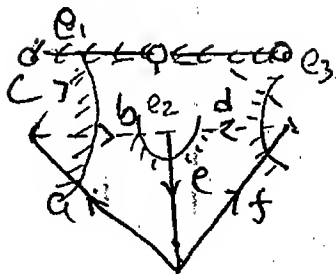 e₁
e₃
c
b e₂ d
e
a f